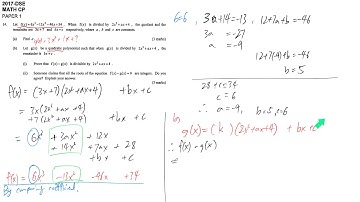 2017-DSE
MATH CP
PAPER 1
14. Let f(x) = 6x³ − 13x² − 46x + 34. When f(x) is divided by 2x² + ax + 4, the quotient and the remainder are 3x + 7 and bx + c respectively, where a, b and c are constants.
(a) Find a.
(3 marks)
(b) Let g(x) be a quadratic polynomial such that when g(x) is divided by 2x² + ax + 4, the remainder is bx + c.
(i) Prove that f(x) − g(x) is divisible by 2x² + ax + 4.
(ii) Someone claims that all the roots of the equation f(x) − g(x) = 0 are integers. Do you agree? Explain your answer.
(5 marks)
f(x) = (3x+7)(2x²+ax+4) + bx + c
= 3x(2x²+ax+4)
+ 7(2x²+ax+4) + bx + c
= 6x³ + 3ax² + 12x
+ 14x² + 7ax + 28
+ bx + c
f(x) = 6x³ −13x² −46x +34
By comparing coefficient.
6=6
3a+14=−13,
3a = −27
a = −9
12+7a+b=−46
12+7(−9)+b=−46
b=5
28+c=34
c=6
∴ a=−9, b=5, c=6
b)
g(x) = (k)(2x²+ax+4) + bx+c
∴ f(x) − g(x)
=